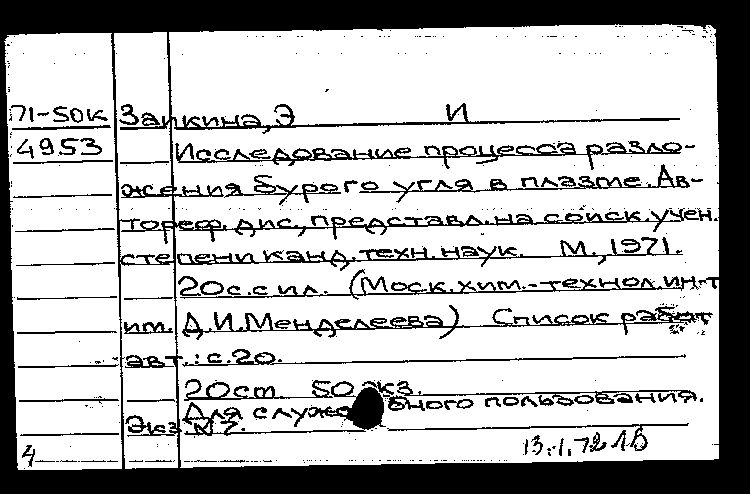 71-50к Заикина, Э И
4953 Исследование процесса разло-
жения бурого угля в плазме. Ав-
тореф. дис., представл. на соиск. учен.
степени канд. техн. наук. М., 1971.
20 с. с ил. (Моск. хим.-технол. ин-т
им. Д.И. Менделеева) Список работ
авт.: с. 20.
20 ст 50 экз.
Для служебного пользования.
Экз. №
4 13.1.72